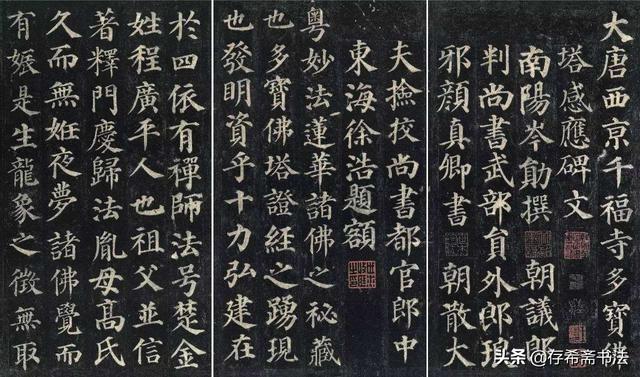 大唐西京千福寺多寶佛
塔感應碑文
南陽岑勛撰 朝議郎
判尚書武部員外郎琅
邪顏真卿書 朝散大
夫撿挍尚書都官郎中
東海徐浩題額
粵妙法蓮華諸佛之秘藏
也多寶佛塔證經之踴現
也發明資乎十力弘建在
於四依有禪師法号楚金
姓程廣平人也祖父並信
著釋門慶歸法胤母高氏
久而無妊夜夢諸佛覺而
有娠是生龍象之徵無取
头条@存希斋书法